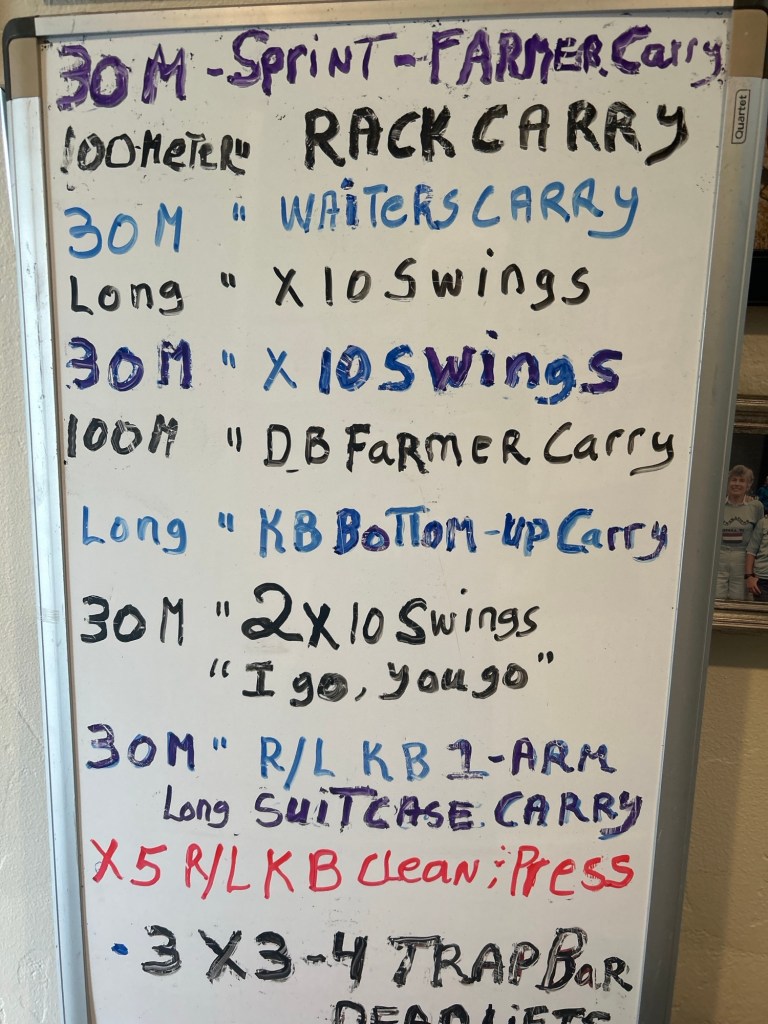 30M - Sprint - FARMER Carry
100 METER " RACK CARRY
30M " WAiTERS CARRY
Long " X 10 Swings
30M " X 10 Swings
100M " DB FaRMER Carry
Long " KB BoTTom-up Carry
30M " 2X10 Swings
"I go, you go"
30M " R/L KB 1-ARM
Long SUiTCASE CARRY
X5 R/L KB Clean ; Press
• 3 X 3-4 TRAP BaR
DEADLiFTS
Quartet